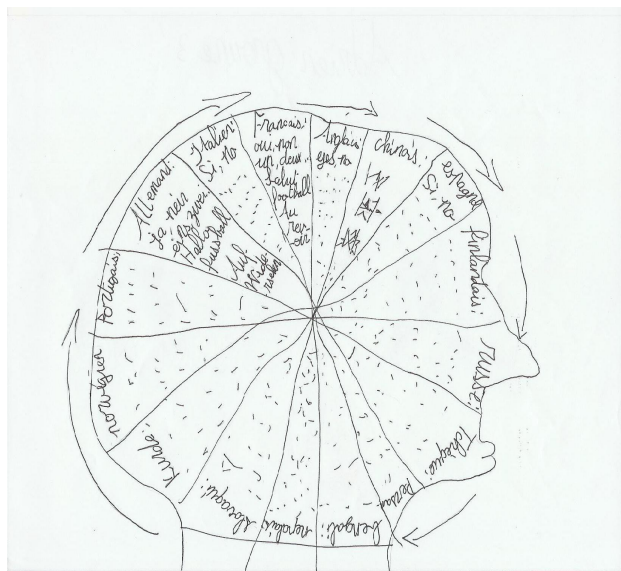 Allemand:
ja nein
eins zwei
Hallo
fussball
Auf
Italien:
Si. no
Français:
oui, non
un, deux
Salut
football
Au
rev
oir
Anglais
yes no
chinois:
espagnol
Si no
finlandais:
russe:
Thèque:
Persan
bengali:
nepalais:
slovaque:
Kurde
norvégien
Portugais: